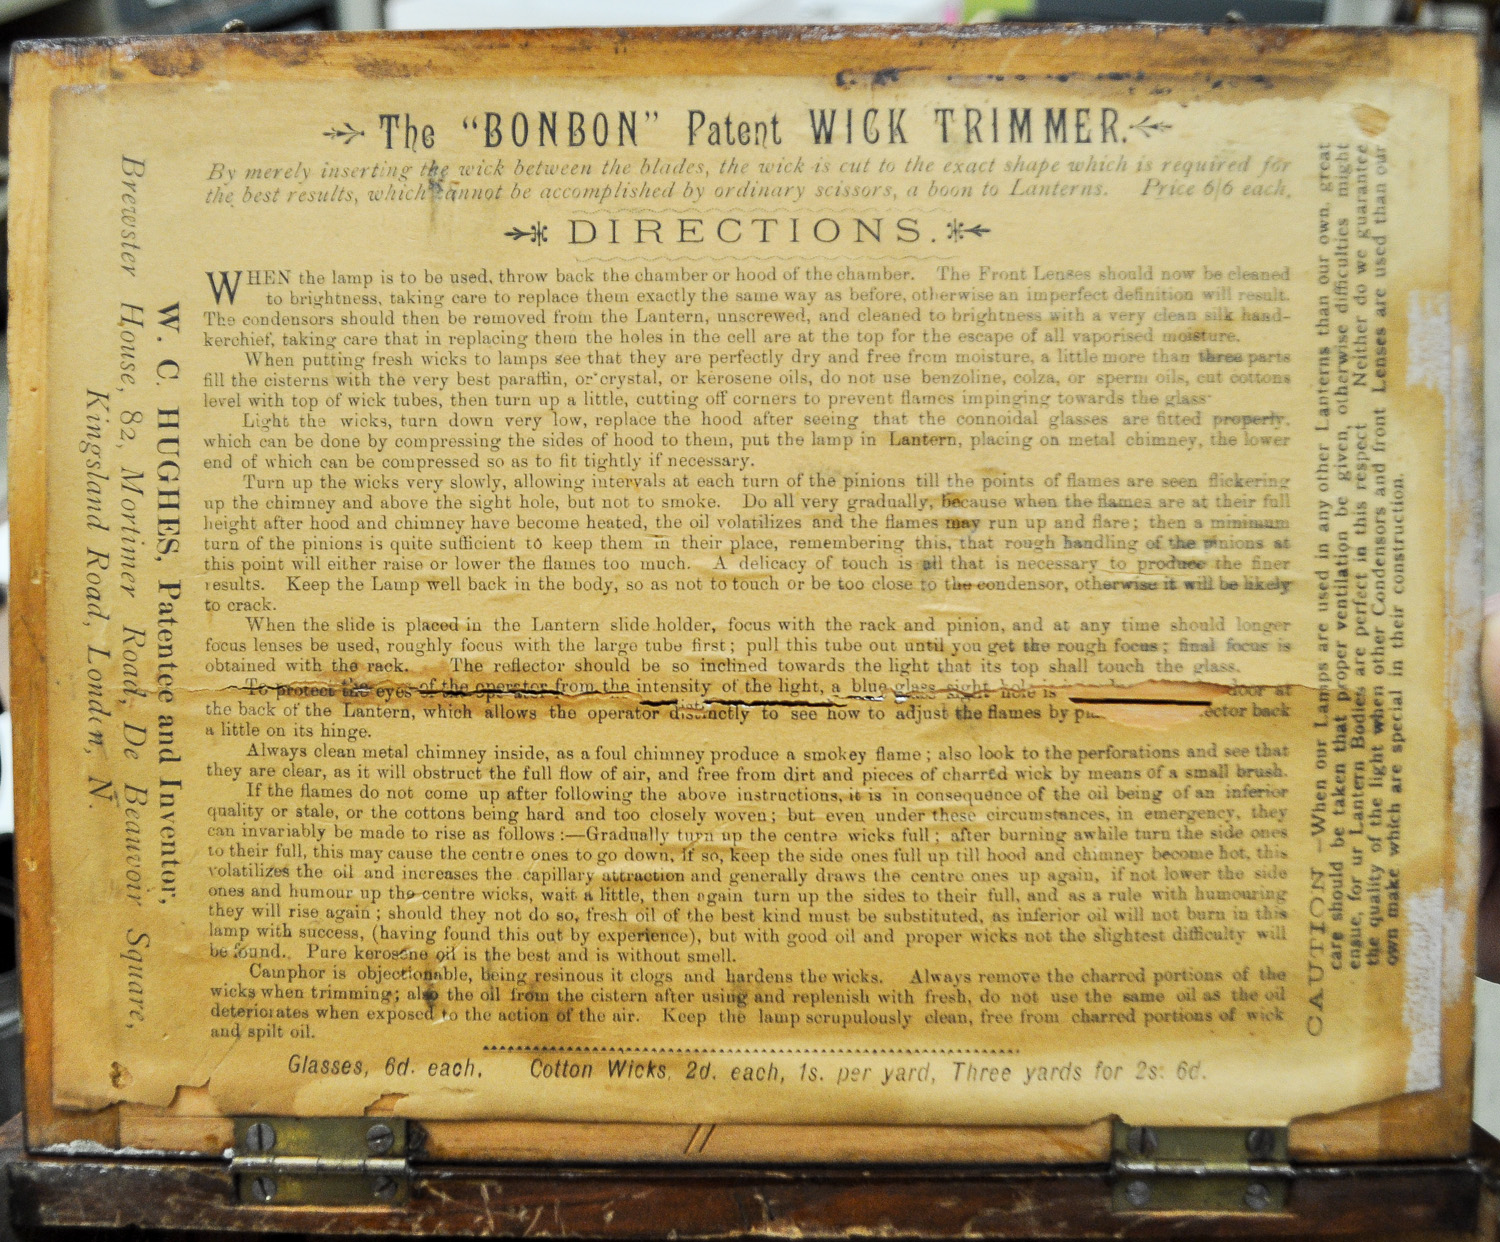 The "BONBON" Patent WICK TRIMMER.
By merely inserting the wick between the blades, the wick is cut to the exact shape which is required for
the best results, which cannot be accomplished by ordinary scissors, a boon to Lanterns. Price 6/6 each.
DIRECTIONS.
WHEN the lamp is to be used, throw back the chamber or hood of the chamber. The Front Lenses should now be cleaned
to brightness, taking care to replace them exactly the same way as before, otherwise an imperfect definition will result.
The condensors should then be removed from the Lantern, unscrewed, and cleaned to brightness with a very clean silk hand-
kerchief, taking care that in replacing them the holes in the cell are at the top for the escape of all vaporised moisture.
When putting fresh wicks to lamps see that they are perfectly dry and free from moisture, a little more than three parts
fill the cisterns with the very best paraffin, or crystal, or kerosene oils, do not use benzoline, colza, or sperm oils, cut cottons
level with top of wick tubes, then turn up a little, cutting off corners to prevent flames impinging towards the glass
Light the wicks, turn down very low, replace the hood after seeing that the connoidal glasses are fitted properly,
which can be done by compressing the sides of hood to them, put the lamp in Lantern, placing on metal chimney, the lower
end of which can be compressed so as to fit tightly if necessary.
Turn up the wicks very slowly, allowing intervals at each turn of the pinions till the points of flames are seen flickering
up the chimney and above the sight hole, but not to smoke. Do all very gradually, because when the flames are at their full
height after hood and chimney have become heated, the oil volatilizes and the flames may run up and flare; then a minimum
turn of the pinions is quite sufficient to keep them in their place, remembering this, that rough handling of the pinions at
this point will either raise or lower the flames too much. A delicacy of touch is all that is necessary to produce the finer
results. Keep the Lamp well back in the body, so as not to touch or be too close to the condensor, otherwise it will be likely
to crack.
When the slide is placed in the Lantern slide holder, focus with the rack and pinion, and at any time should longer
focus lenses be used, roughly focus with the large tube first; pull this tube out until you get the rough focus; final focus is
obtained with the rack. The reflector should be so inclined towards the light that its top shall touch the glass.
To protect the eyes of the operator from the intensity of the light, a blue glass sight hole is door at
the back of the Lantern, which allows the operator distinctly to see how to adjust the flames by back
a little on its hinge.
Always clean metal chimney inside, as a foul chimney produce a smokey flame; also look to the perforations and see that
they are clear, as it will obstruct the full flow of air, and free from dirt and pieces of charred wick by means of a small brush.
If the flames do not come up after following the above instructions, it is in consequence of the oil being of an inferior
quality or stale, or the cottons being hard and too closely woven; but even under these circumstances, in emergency, they
can invariably be made to rise as follows:—Gradually turn up the centre wicks full; after burning awhile turn the side ones
to their full, this may cause the centre ones to go down, if so, keep the side ones full up till hood and chimney become hot, this
volatilizes the oil and increases the capillary attraction and generally draws the centre ones up again, if not lower the side
ones and humour up the centre wicks, wait a little, then again turn up the sides to their full, and as a rule with humouring
they will rise again; should they not do so, fresh oil of the best kind must be substituted, as inferior oil will not burn in this
lamp with success, (having found this out by experience), but with good oil and proper wicks not the slightest difficulty will
be found. Pure kerosene oil is the best and is without smell.
Camphor is objectionable, being resinous it clogs and hardens the wicks. Always remove the charred portions of the
wicks when trimming; also the oil from the cistern after using and replenish with fresh, do not use the same oil as the oil
deteriorates when exposed to the action of the air. Keep the lamp scrupulously clean, free from charred portions of wick
and spilt oil.
Glasses, 6d. each, Cotton Wicks, 2d. each, 1s. per yard, Three yards for 2s. 6d.
W. C. HUGHES, Patentee and Inventor,
Brewster House, 82, Mortimer Road, De Beauvoir Square,
Kingsland Road, London, N.
CAUTION—When our Lamps are used in any other Lanterns than our own, great
care should be taken that proper ventilation be given, otherwise difficulties might
ensue, for ur Lantern Bodies are perfect in this respect Neither do we guarantee
the quality of the light when other Condensors and front Lenses are used than our
own make which are special in their construction.